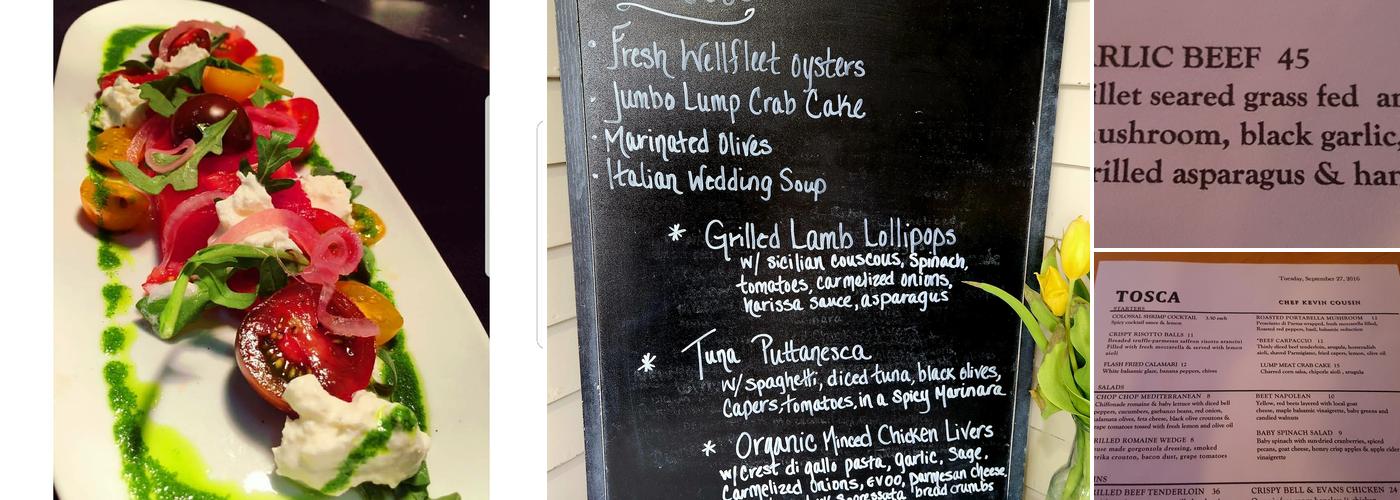 Fresh Wellfleet oysters
Jumbo Lump Crab Cake
Marinated Olives
Italian Wedding Soup
* Grilled Lamb Lollipops
w/ sicilian couscous, spinach,
tomatoes, carmelized onions,
harissa sauce, asparagus
* Tuna Puttanesca
w/ spaghetti, diced tuna, black olives,
Capers, tomatoes, in a spicy Marinara
* Organic Minced Chicken Livers
w/ Crest di gallo pasta, garlic, sage,
Carmelized Onions, evoo, parmesan cheese,
bread crumbs
ARLIC BEEF 45
illet seared grass fed
ushroom, black garlic,
rilled asparagus & har
Tuesday, September 27, 2016
TOSCA
CHEF KEVIN COUSIN
STARTERS
COLOSSAL SHRIMP COCKTAIL 3.50 each
Spicy cocktail sauce & lemon
CRISPY RISOTTO BALLS 11
Breaded truffle-parmesan saffron risotto arancini
Filled with fresh mozzarella & served with lemon
aioli
FLASH FRIED CALAMARI 12
White balsamic glaze, banana peppers, chives
ROASTED PORTABELLA MUSHROOM 11
Prosciutto di Parma-wrapped, fresh mozzarella filled,
Roasted red peppers, basil, balsamic reduction
*BEEF CARPACCIO 12
Thinly diced beef tenderloin, arugula, horseradish
aioli, shaved Parmigiano, fried capers, lemon, olive oil
LUMP MEAT CRAB CAKE 15
Charred corn salsa, chipotle aioli, arugula
SALADS
CHOP CHOP MEDITERRANEAN 8
Chiffonade romaine & baby lettuce with diced bell
peppers, cucumbers, garbanzo beans, red onion,
kalamata olives, feta cheese, black olive croutons &
grape tomatoes tossed with fresh lemon and olive oil
GRILLED ROMAINE WEDGE 8
house made gorgonzola dressing, smoked
paprika crouton, bacon dust, grape tomatoes
BEET NAPOLEON 10
Yellow, red beets layered with local goat
cheese, maple balsamic vinaigrette, baby greens and
candied walnuts
BABY SPINACH SALAD 9
Baby spinach with sun-dried cranberries, spiced
pecans, goat cheese, honey crisp apples & apple cider
vinaigrette
GRILLED BEEF TENDERLOIN 36
CRISPY BELL & EVANS CHICKEN 24